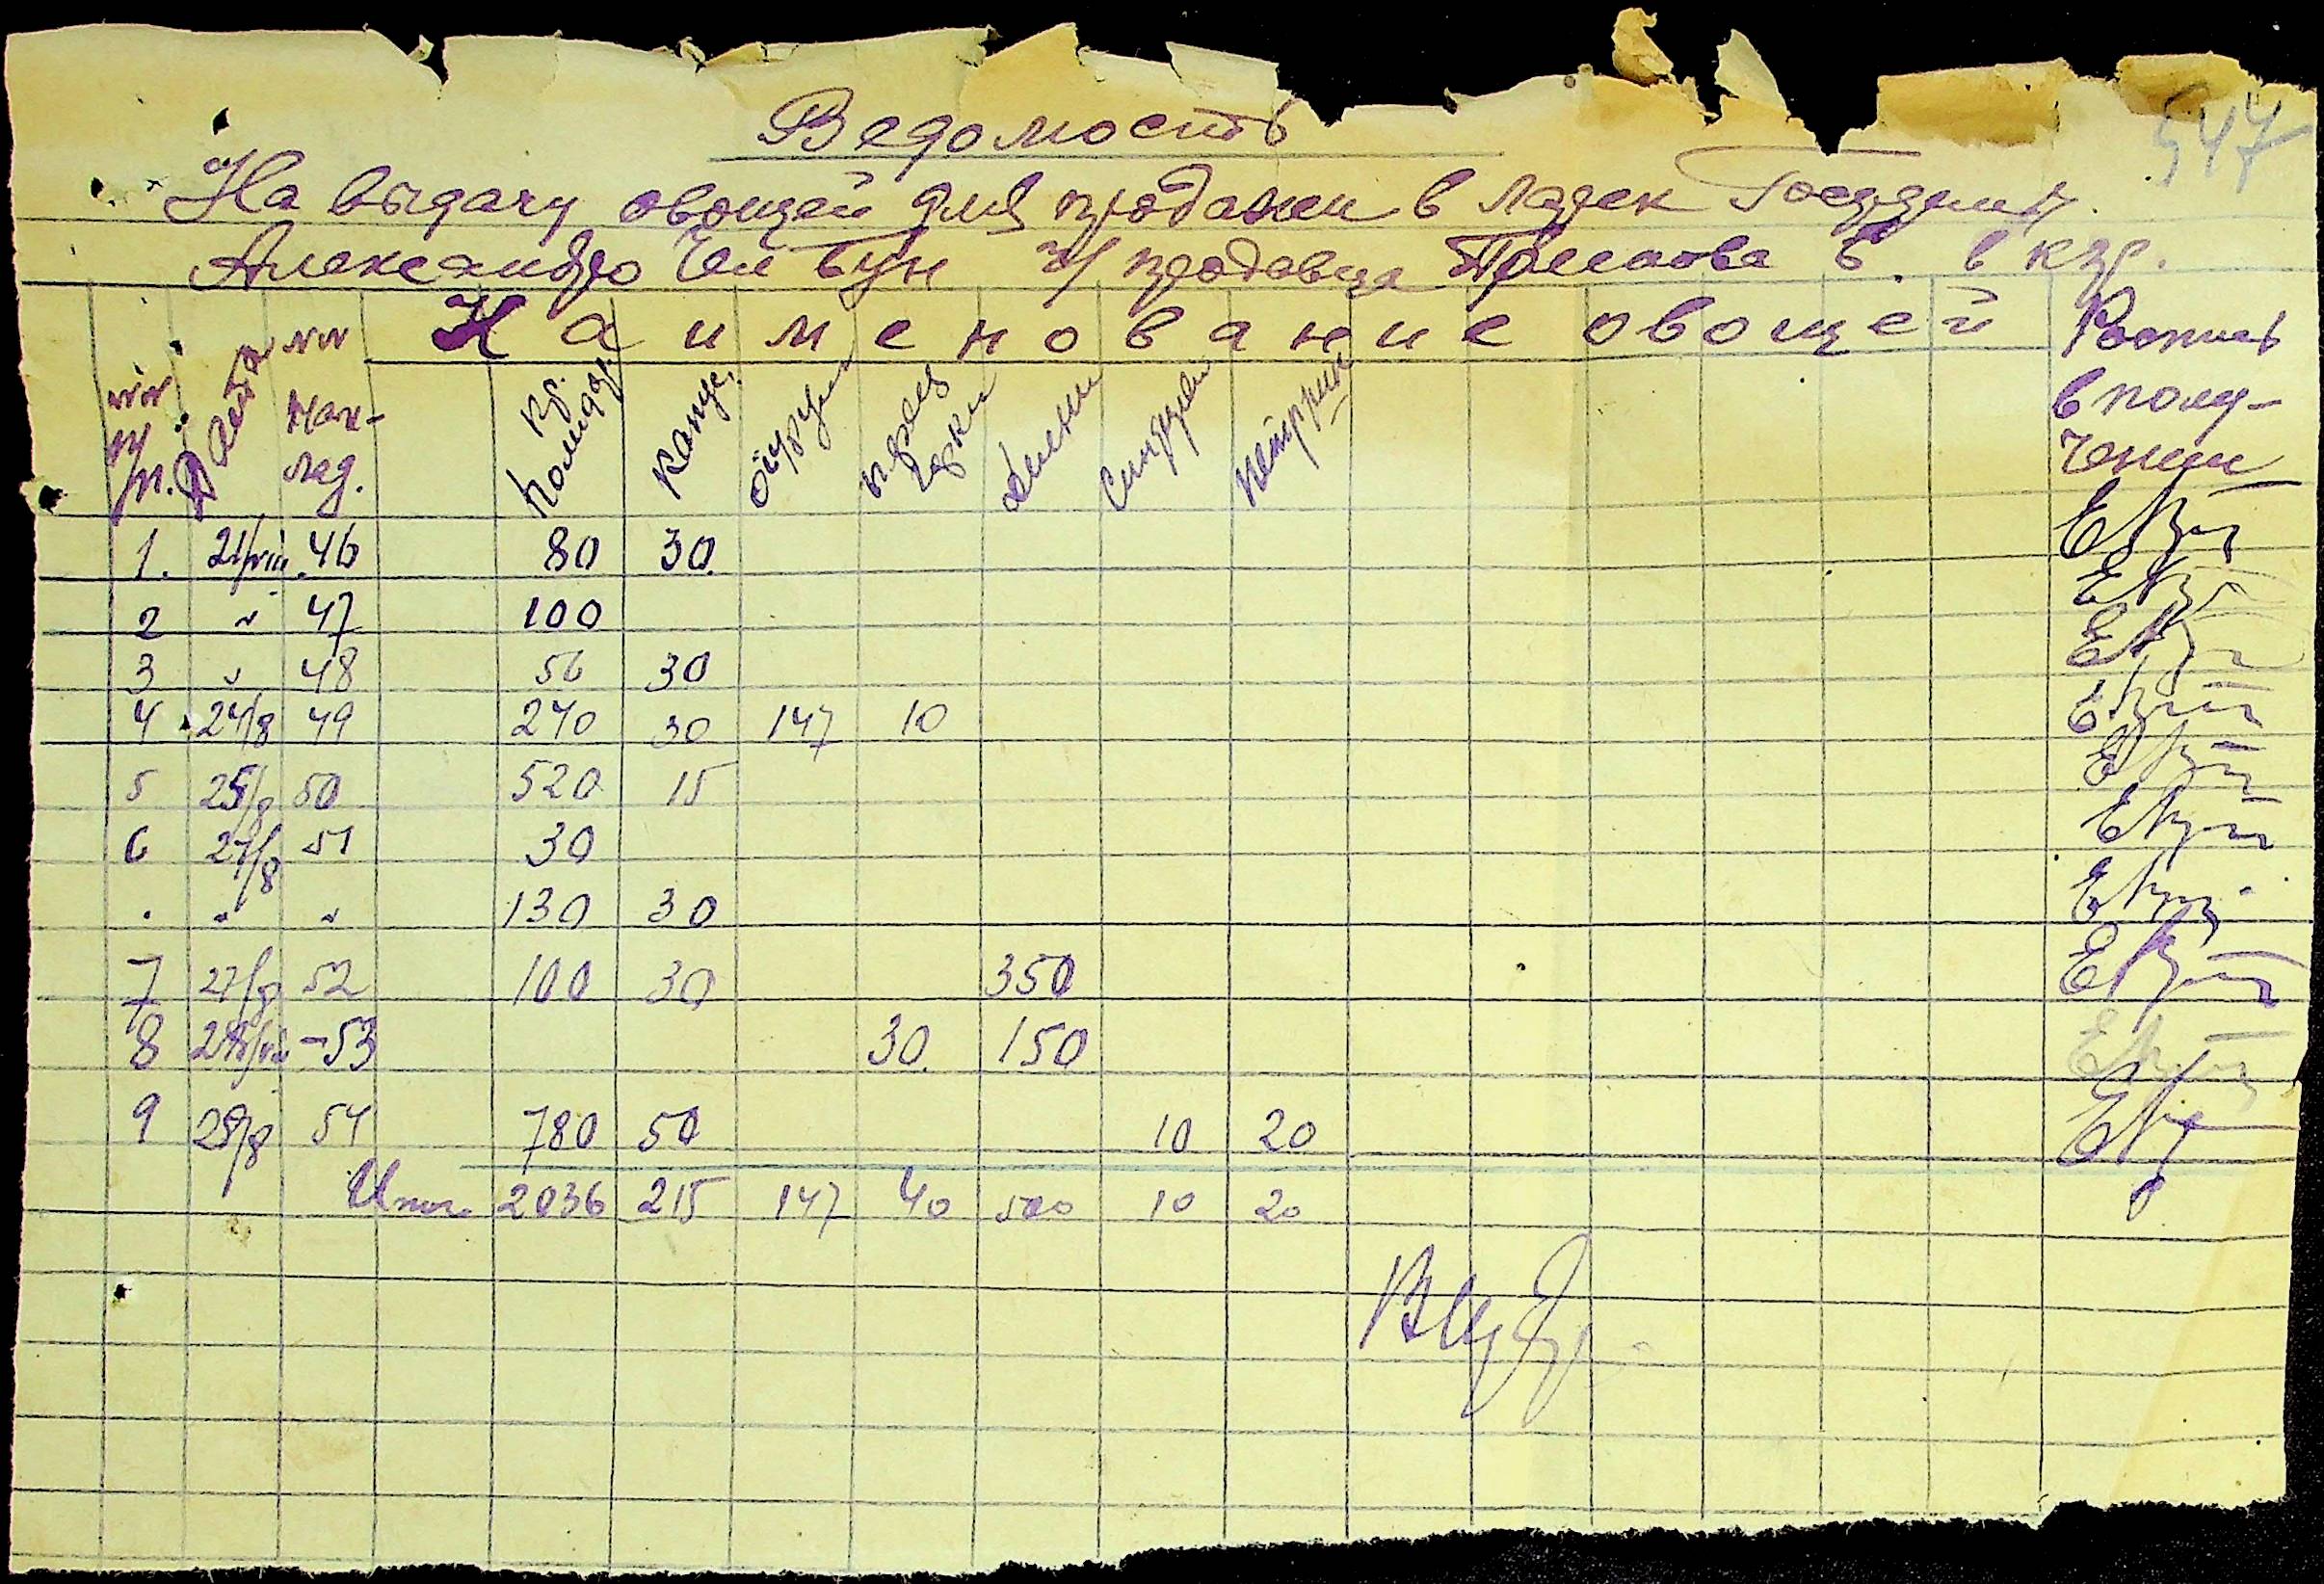 547
Ведомость
На выдачу овощей для продажи в ларек
Александро Чен бун ч/ продавца в кгр.
Наименование овощей
№№ пп. Дата №№ Наклад. Кр. Помидор Капус. Огурцы Перец горки Дыни Петруш Роспись в получении
1. 21/VIII. 46 80 30
2 " 47 100
3 " 48 56 30
4 24/8 49 240 30 147 10
5 25/8 50 520 15
6 27/8 51 30
" " " 130 30
7 27/8 52 100 30 350
8 28/VIII - 53 30 150
9 29/8 54 780 50 10 20
Итого 2036 215 147 40 500 10 20